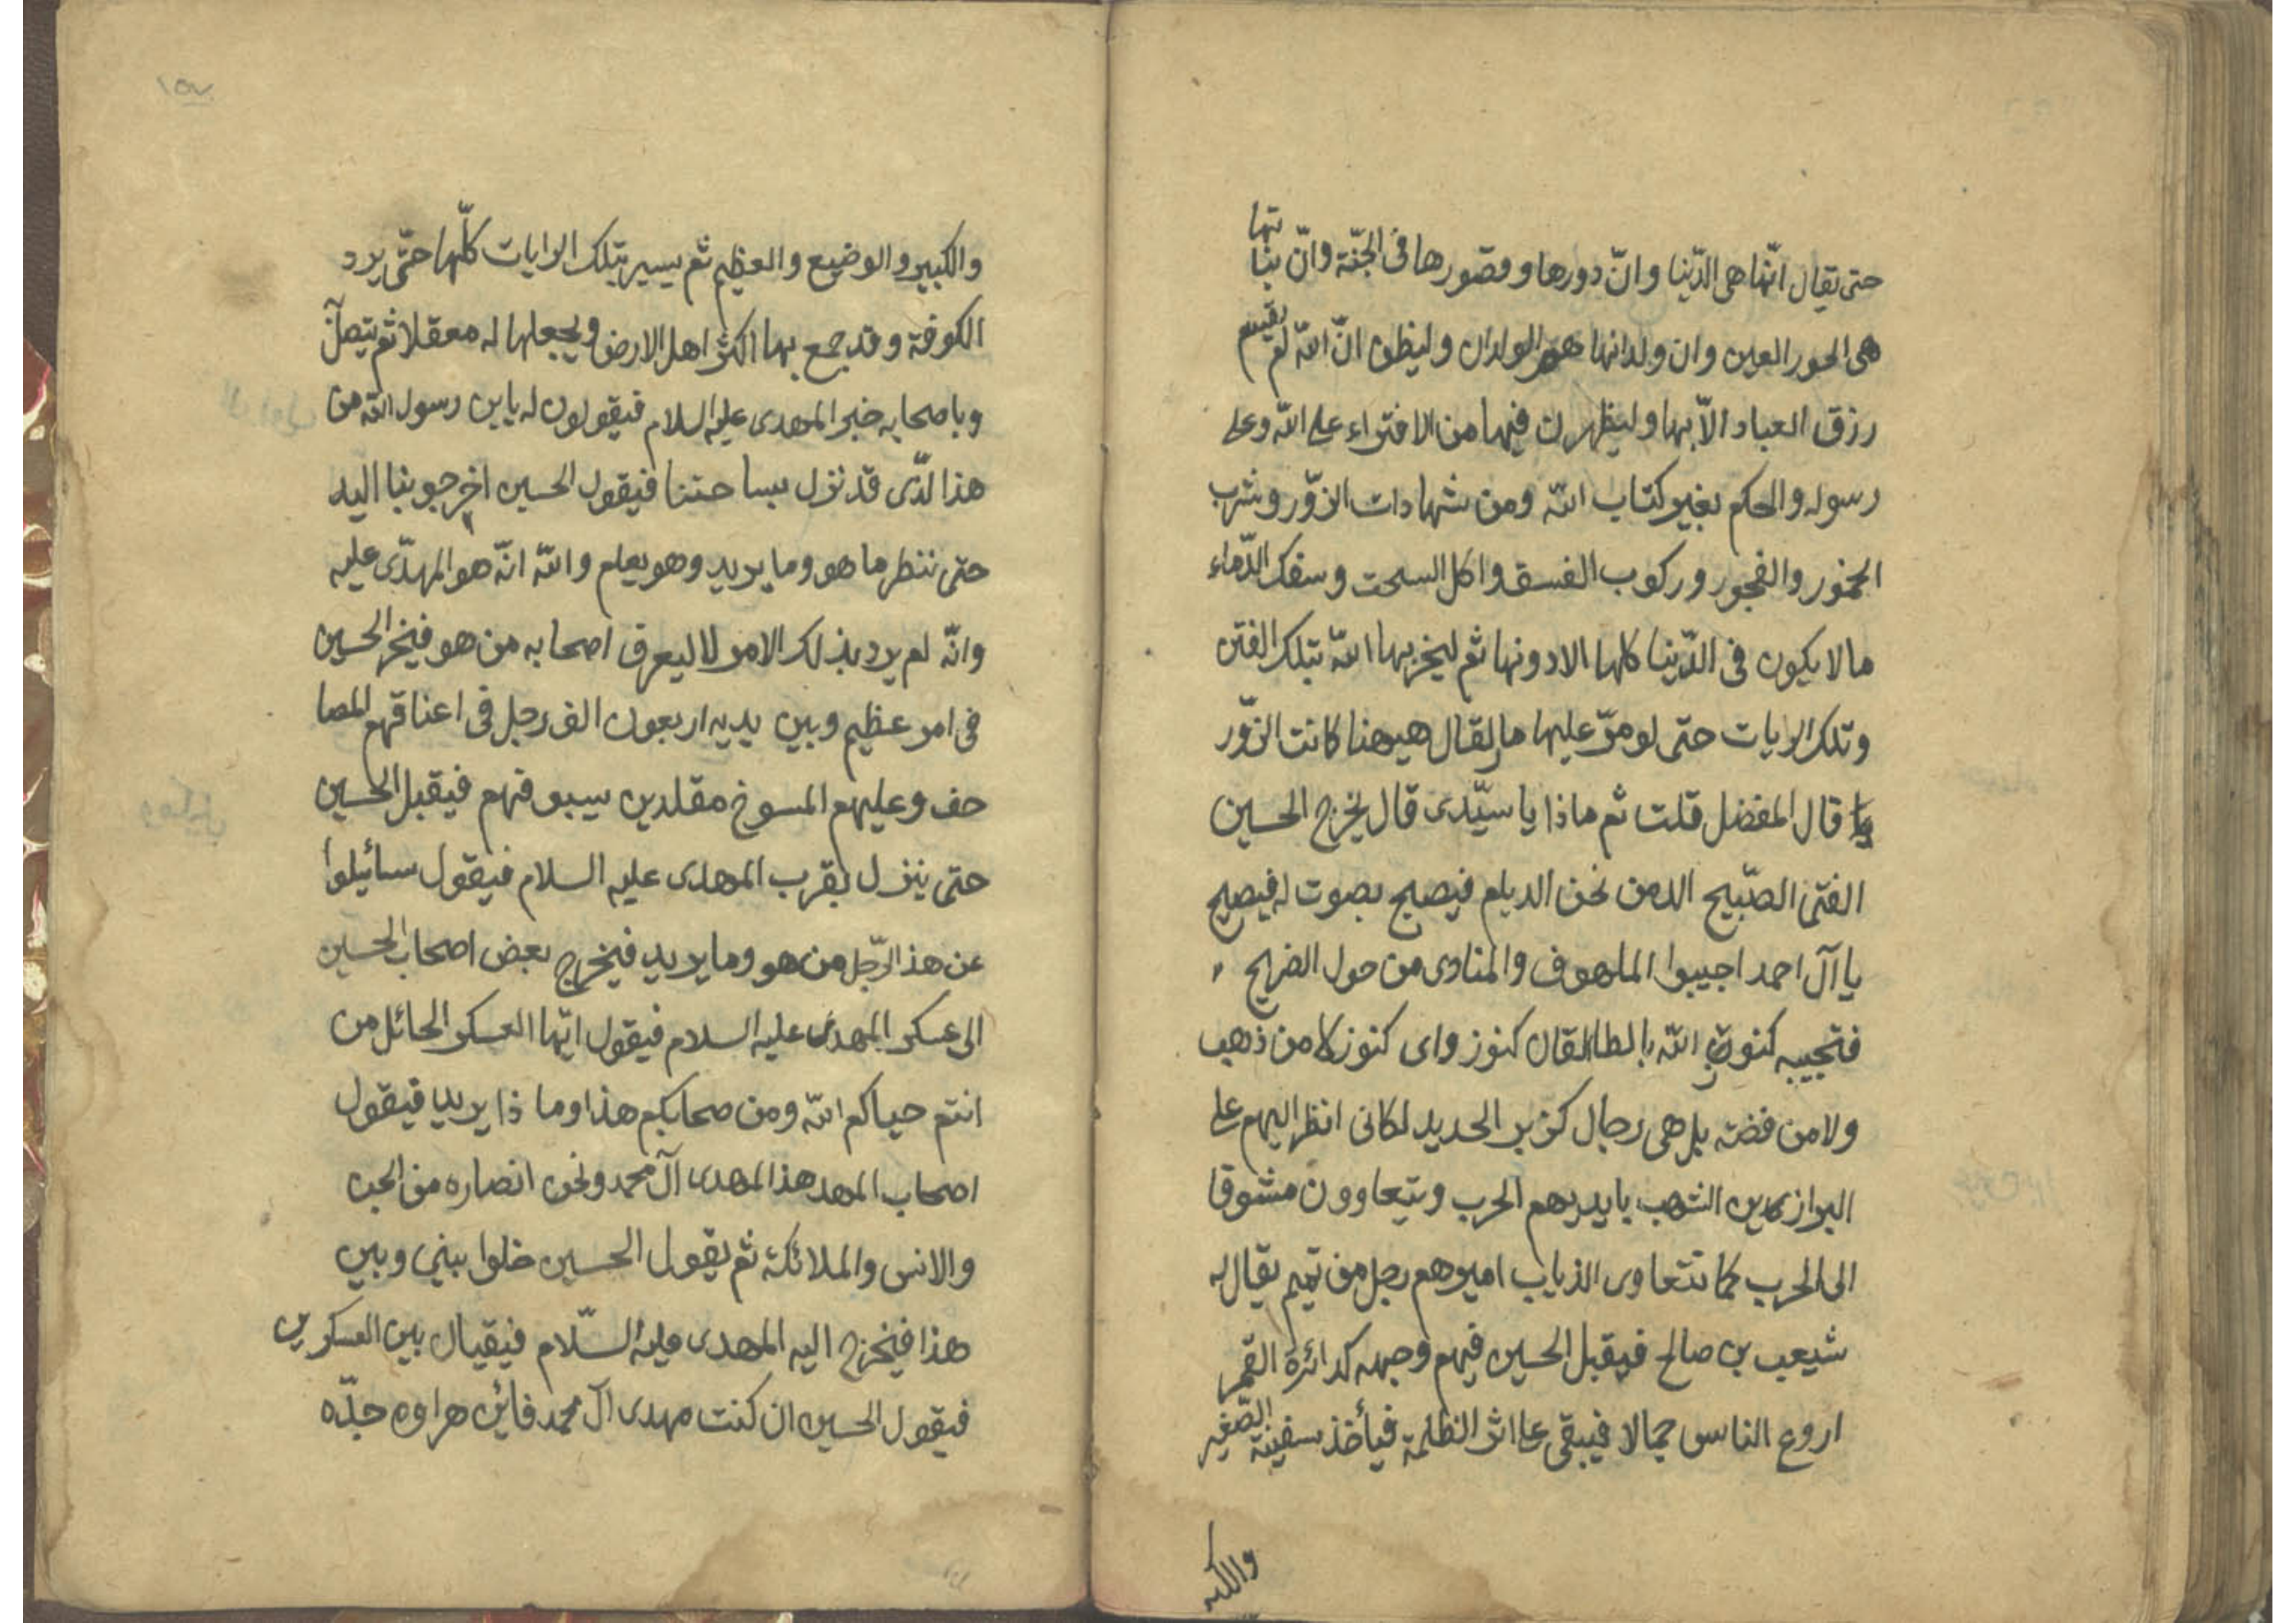 حتى يقال انّها هى الدّنيا وانّ دورها وقصورها فى الجنّة وانّ بناتها
هى الحور العين وان ولدانها هم الولدان وليظن انّ الله لم يقسم
رزق العباد الاّ بها وليظهرن فيها من الافتراء على الله وعلى
رسوله والحكم بغير كتاب الله ومن شهادات الزوّر وشرب
الخمور والفجور وركوب الفسق واكل السحت وسفك الدّماء
ما لا يكون فى الدّنيا كلها الا دونها ثم ليخربها الله بتلك الفتن
وتلك الرايات حتى لو مرّ عليها مار لقال هيهنا كانت الزوّر
يا قال المفضل قلت ثم ماذا يا سيّدى قال يخرج الحسين
الفتى الصّبيح الذمن نحن الديلم فيصيح بصوت له فيصيح
يا آل احمد اجيبوا الملهوف والمنادى من حول الضريح
فتجيبه كنوز الله بالطالقان كنوز واى كنوز لا من ذهب
ولا من فضة بل هى رجال كزبر الحديد لكانى انظر اليهم على
البرازين الشهب بايديهم الحرب ويتعاوون مشوقا
الى الحرب كما تتعاوى الذياب اميرهم رجل من تميم يقال له
شيعب بن صالح فيقبل الحسين فيهم وجهه كدائرة القمر
اروع الناس جمالا فيبقى على اثر الظلمة فيأخذ سفينة الصّغير
والكبير
والكبير والوضيع والعظيم ثم يسير بتلك الرايات كلّها حتّى يرد
الكوفة وقد جمع بها اكثر اهل الارض ويجعلها له معقلا ثم يتصل
وباصحابه خبر المهدى عليه السلام فيقولون له يابن رسول الله من
هذا لّذى قد نزل بساحتنا فيقول الحسين اخرجو بنا اليه
حتى ننظر ما هو وما يريد وهو يعلم والله انّه هو المهدّى عليه
وانّه لم يرد بذلك الامر لا ليعرف اصحابه من هو فيخر الحسين
فى امر عظيم وبين يديه اربعون الف رجل فى اعناقهم المصا
حف وعليهم المسوخ مقلدين سيوفهم فيقبل الحسين
حتى ينزل بقرب المهدى عليه السلام فيقول سائيلوا
عن هذا الرّجل من هو وما يريد فيخرج بعض اصحاب الحسين
الى عسكر المهدى عليه السلام فيقول ايّها العسكر الحائل من
انتم حياكم الله ومن صحابكم هذا وما ذا يريد فيقول
اصحاب المهد هذا المهدى آل محمد ونحن انصاره من الجن
والانس والملائكة ثم يقول الحسين خلوا بينى وبين
هذا فيخرج اليه المهدى عليه السّلام فيقيال بين العسكرين
فيقول الحسين ان كنت مهدى آل محمد فائن هراوه جدّه